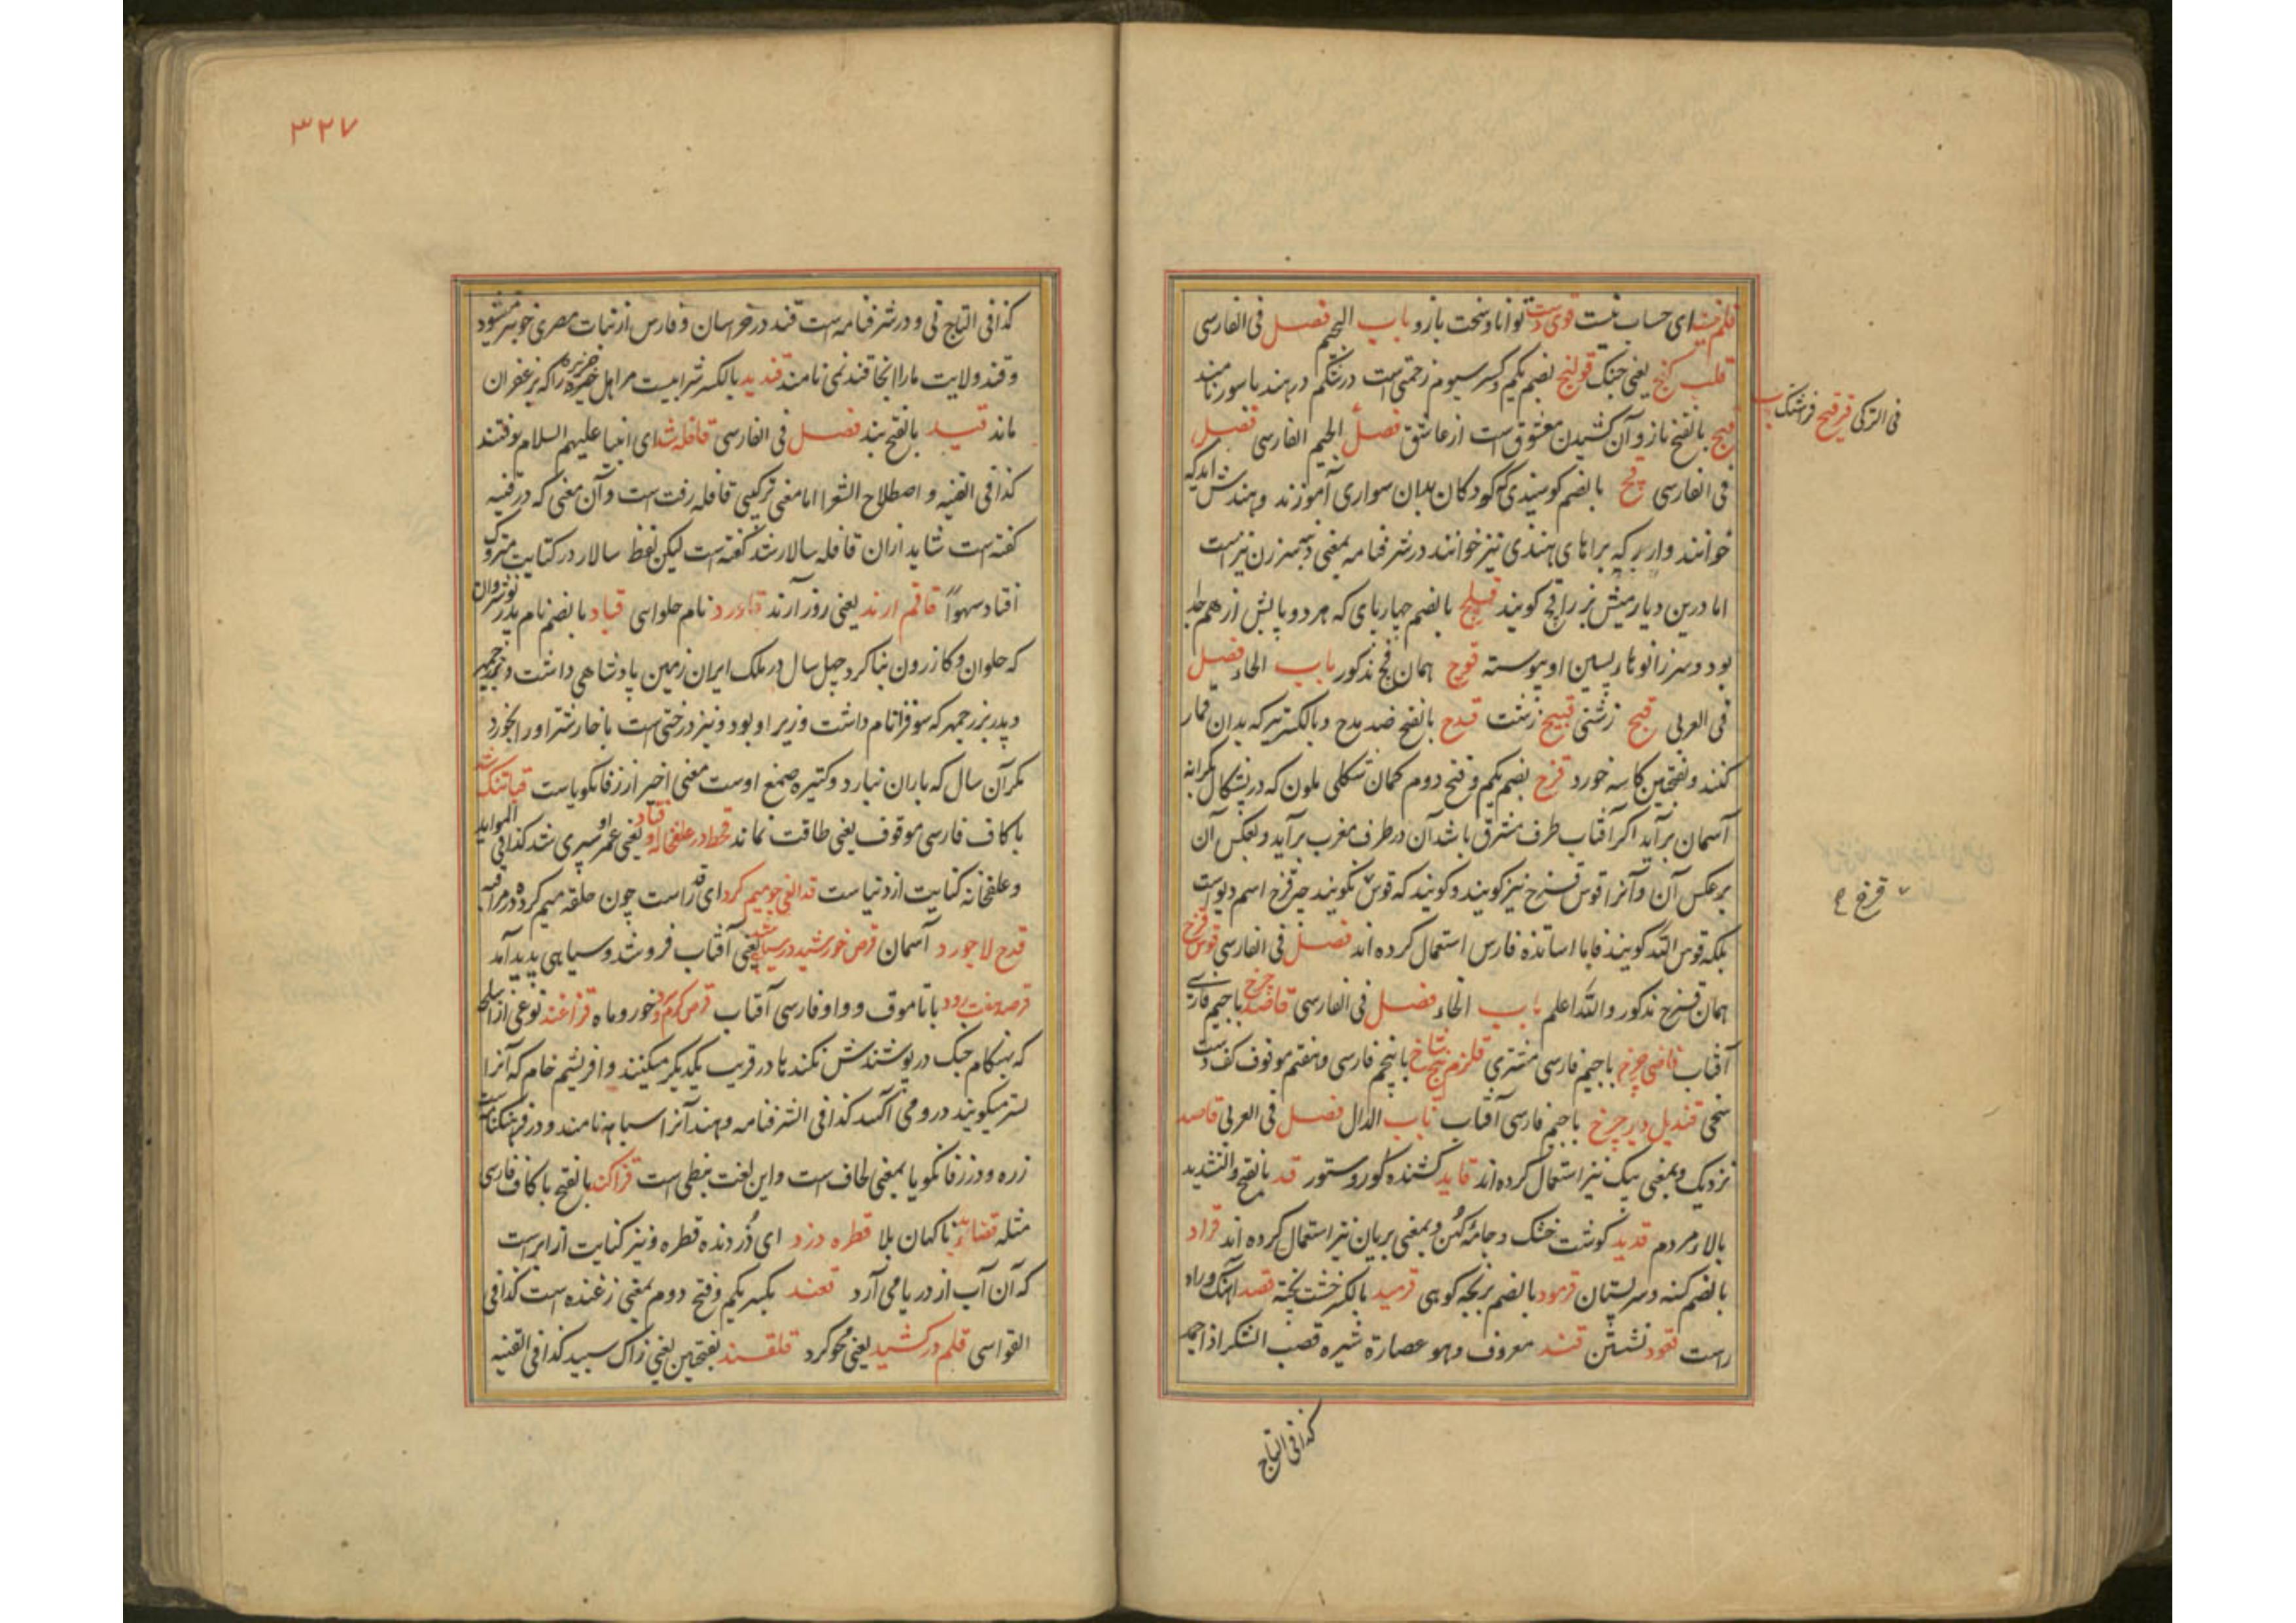 ای حساب نیست قوی دست توانا و سخت بازو باب الجیم فصل فی الفارسی
قلب کنج یعنی جنک قولنج بضم یکم و کسر سیوم زحمتی است در شکم در هند باسور نامند
بالفتح ناز و آن کشیدن معشوق است از عاشق فصل الجیم الفارسی فصل
فی الترکی قرقیج
فی الفارسی قج بالضم کوسپندی که کودکان بدان سواری آموزند و هندش
خوانند و اربر که برابای هندی نیز خوانند در شرفنامه بمعنی دبّه سرزن نیز است
اما درین دیار میش نر را قج کویند بالضم چهارپای که هر دو پایش از هم جدا
بود و سر زانوها پیوسته قوج همان قج مذکور باب الحاء فصل
فی العربی قبح زشتی قبیح زشت قدح بالفتح ضد مدح و بالکسر تیر که بدان قمار
کنند و بفتحتین کاسه خورد قزح بضم یکم و فتح دوم کمان شکلی ملون که در بشکال بکرانه
آسمان برآید اکر آفتاب طرف مشرق باشد آن در طرف مغرب برآید و بعکس آن
برعکس آن و آنرا قوس قزح نیز کویند و کویند که قوس نکویند چه قزح اسم دیوست
قزخ
بلکه قوس الله کویند فاما اساتذه فارس استعمال کرده اند فصل فی الفارسی قوس قزح
همان قزح مذکور والله اعلم باب الخاء فصل فی الفارسی قاصد چرخ باجیم فارسی
آفتاب قاضی چرخ باجیم فارسی مشتری قلزم پنج شاخ باپنجم فارسی و هفتم موقوف کف دست
سخی قندیل دیر چرخ باجیم فارسی آفتاب باب الدال فصل فی العربی قاصد
نزدیک و بمعنی پیک نیز استعمال کرده اند قاید کشنده کور و ستور قد بالفتح والتشدید
بالاء مردم قدید کوشت خشک و جامه کهن و بمعنی بریان نیز استعمال کرده اند قراد
بالضم کنه و سر پستان قرمود بالضم بزبچه کوهی قرمید بالکسر خشت پخته قصد آهنک و راه
راست قعود نشستن قند معروف و هو عصارة شیره قصب السکر اذا جمد
کذا فی التاج
۳۲۷
کذا فی التاج فی و در شرفنامه است قند در خراسان و فارس از نبات مصری خوبتر میشود
و قند ولایت ما را انجا قند نمی نامند قندید بالکسر شرابیست مر اهل جزیره را که بزعفران
ماند قید بالفتح بند فصل فی الفارسی قافله شد ای انبیا علیهم السلام برفتند
کذا فی القنیه و اصطلاح الشعرا اما معنی ترکیبی قافله رفت است و آن معنی که در قنیه
کفته است شاید ازان قافله سالار شد کفته است لیکن لفظ سالار در کتابت متروک
افتاد سهوا قاقم ارند یعنی روز آرند نام حلواسی قباد بالضم نام پدر نوشروان
که حلوان و کازرون بنا کرد چهل سال در ملک ایران زمین پادشاهی داشت و
و پدر بزرجمهر که سوفرا نام داشت وزیر او بود و نیز درختی است باخار شتر او را بخورد
مکر آن سال که باران نبارد و کتیره صمغ اوست معنی اخیر از زفانکویاست قبا تنک شد
با کاف فارسی موقوف یعنی طاقت نماند قحط در علفخانه او فتاد یعنی عمر او سپری شد کذا فی الموائد
و علفخانه کنایت از دنیاست قد الفی چو میم کرد ای قد راست چون حلقه میم کرد
قدح لاجورد آسمان قرص خورشید در سیاهی شد یعنی آفتاب فرو شد و سیاهی پدید آمد
باتا موقوف و واو فارسی آفتاب خور و ماه قزاغند نوعی از سلاح
که بهنکام جنک در پوشندش بکند تا در قریب یکدیکر میکنند و افریشم خام که آنرا
لستر میکویند درو می آکنند کذا فی الشرفنامه و هند آنرا نامند و در فرهنکنامه است
زره و در زفانکویا بمعنی لحاف است و این لغت نبطی است قزاکند بالفتح با کاف فارسی
مثله قضائد ناکهان بلا قطره دزد ای دزدنده قطره و نیز کنایت از ابر است
که آن آب از دریا می آرد قعند بکسر یکم و فتح دوم بمعنی زغنده است کذا فی
القواسی قلم درکشید یعنی محو کرد قلقند بفتحتین یعنی زاک سپید کذا فی القنیه